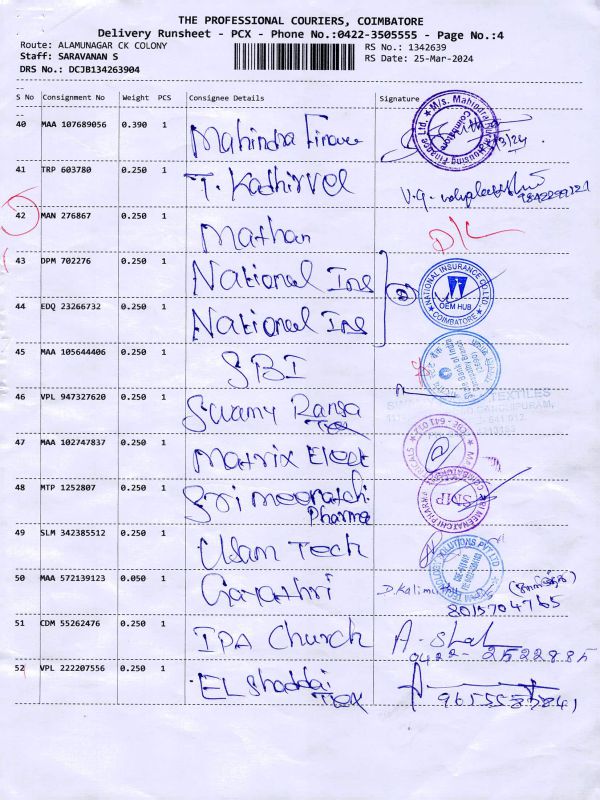 THE PROFESSIONAL COURIERS, COIMBATORE
Delivery Runsheet - PCX - Phone No.:0422-3505555 - Page No.:4
Route: ALAMUNAGAR CK COLONY
RS No.: 1342639
Staff: SARAVANAN S
RS Date: 25-Mar-2024
DRS No.: DCJB134263904
S No Consignment No Weight PCS Consignee Details Signature
40 MAA 107689056 0.390 1 Mahindra Finance
M/s. Mahindra Rural Housing Finance Ltd. Coimbatore
41 TRP 603780 0.250 1 T. Kathirvel V.G.
42 MAN 276867 0.250 1 Mathan D/L
43 DPM 702276 0.250 1 National Ins
NATIONAL INSURANCE CO LTD. OEM HUB COIMBATORE
44 EDQ 23266732 0.250 1 National Ins
45 MAA 105644406 0.250 1 SBI
46 VPL 947327620 0.250 1 Swamy Ransa
Tex
TEXTILES
47 MAA 102747837 0.250 1 Matrix Elect
48 MTP 1252807 0.250 1 Sri meenatchi
Pharma
SMP
49 SLM 342385512 0.250 1 Usam Tech
50 MAA 572139123 0.050 1 Gayathri
8015704765
51 CDM 55262476 0.250 1 IPA Church A. Shah
0422- 2522885
52 VPL 222207556 0.250 1 EL Shaddai
Tex